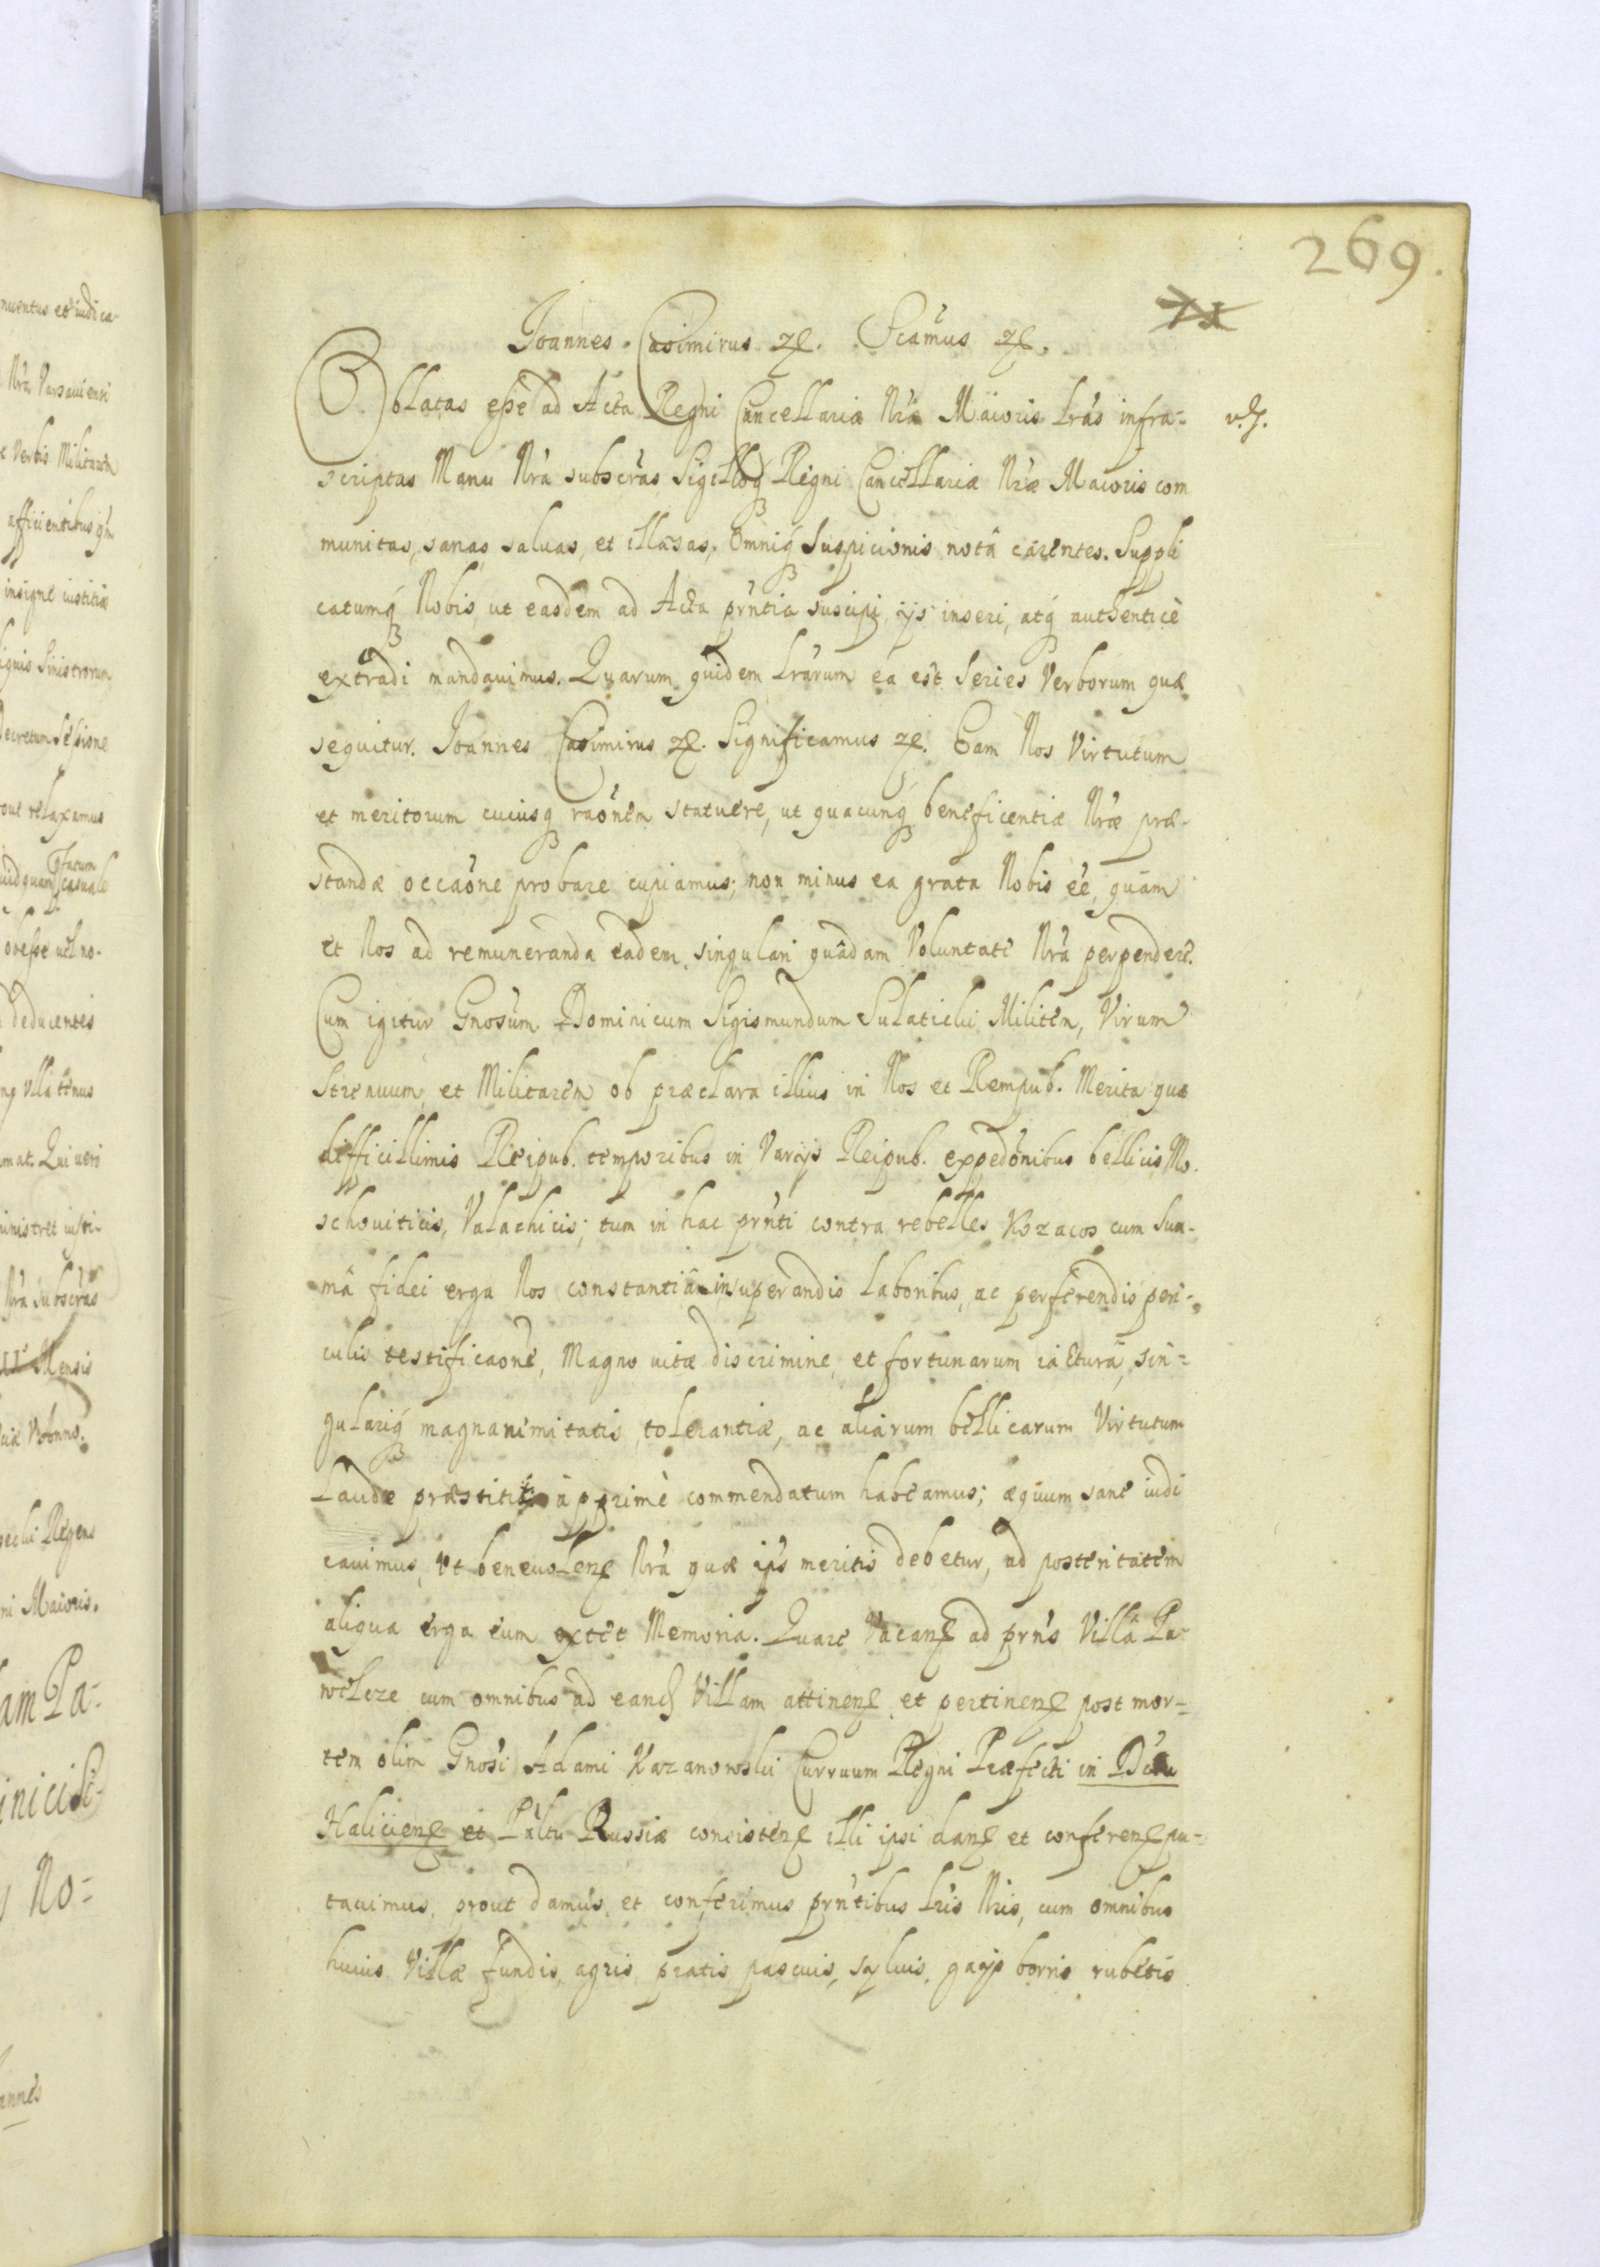 269.
Joannes Casimirus etc. Scamus etc.
Oblatas esse ad Acta Regni Cancellariæ Nræ Maioris Lras infra-
scriptas Manu Nrá subscras Sigilloq Regni Cancellariæ Nræ Maioris com
munitas, sanas, saluas, et illæsas, Omniq Suspicionis notâ carentes. Suppli
catumq Nobis, ut easdem ad Acta prntia suscipi, ijs inseri, atq authenticè
extradi mandauimus. Quarum quidem Lrarum ea est Series Verborum quæ
sequitur. Joannes Casimirus etc. Significamus etc. Eam Nos Virtutum
et meritorum cuiusq raonem statuere, ut quacunq beneficentiæ Nræ præ-
standæ occaone probare cupiamus; non minus ea grata Nobis ee, quam
et Nos ad remuneranda eadem singulari quâdam Voluntate Nrá perpendere.
Cum igitur Gnosum Dominicum Sigismundum Sulaticki Militem, Virum
Strenuum et Militarem ob præclara illius in Nos et Rempub. Merita quæ
difficillimis Reipub. temporibus in Varijs Reipub. expedonibus bellicis Mo-
schouiticis, Valachicis; tum in hac prnti contra rebelles Kozacos cum Sum-
mâ fidei erga Nos constantiâ in superandis Laboribus, ac perferendis peri-
culis testificaone, Magno uitæ discrimine, et fortunarum iacturâ, sin-
gulariq magnanimitatis, tolerantiæ, ac aliarum bellicarum Virtutum
Laude præstitit apprimè commendatum habeamus; æquum sane iudi
cauimus, Vt beneuolen Nrá quæ ips meritis debetur, ad posteritatem
aliqua erga eum extet Memoria. Quare Vacan ad prns Villâ Pa-
welcze cum omnibus ad eand Villam attinen et pertinen post mor-
tem olim Gnosi Adami Kazanowski Curruum Regni Præfecti in
Halicien et Paltu Russiæ consisten illi ipsi dan et conferen pu-
tauimus, prout damus, et conferimus prntibus Lris Nris, cum omnibus
huius Villæ fundis, agris, pratis pascuis, syluis, gays borris rubetis